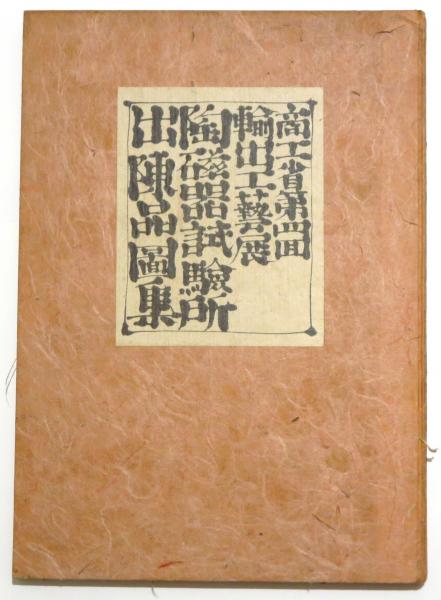 商工省第四回
輸出工藝展
陶磁器試驗所
出陳品圖集